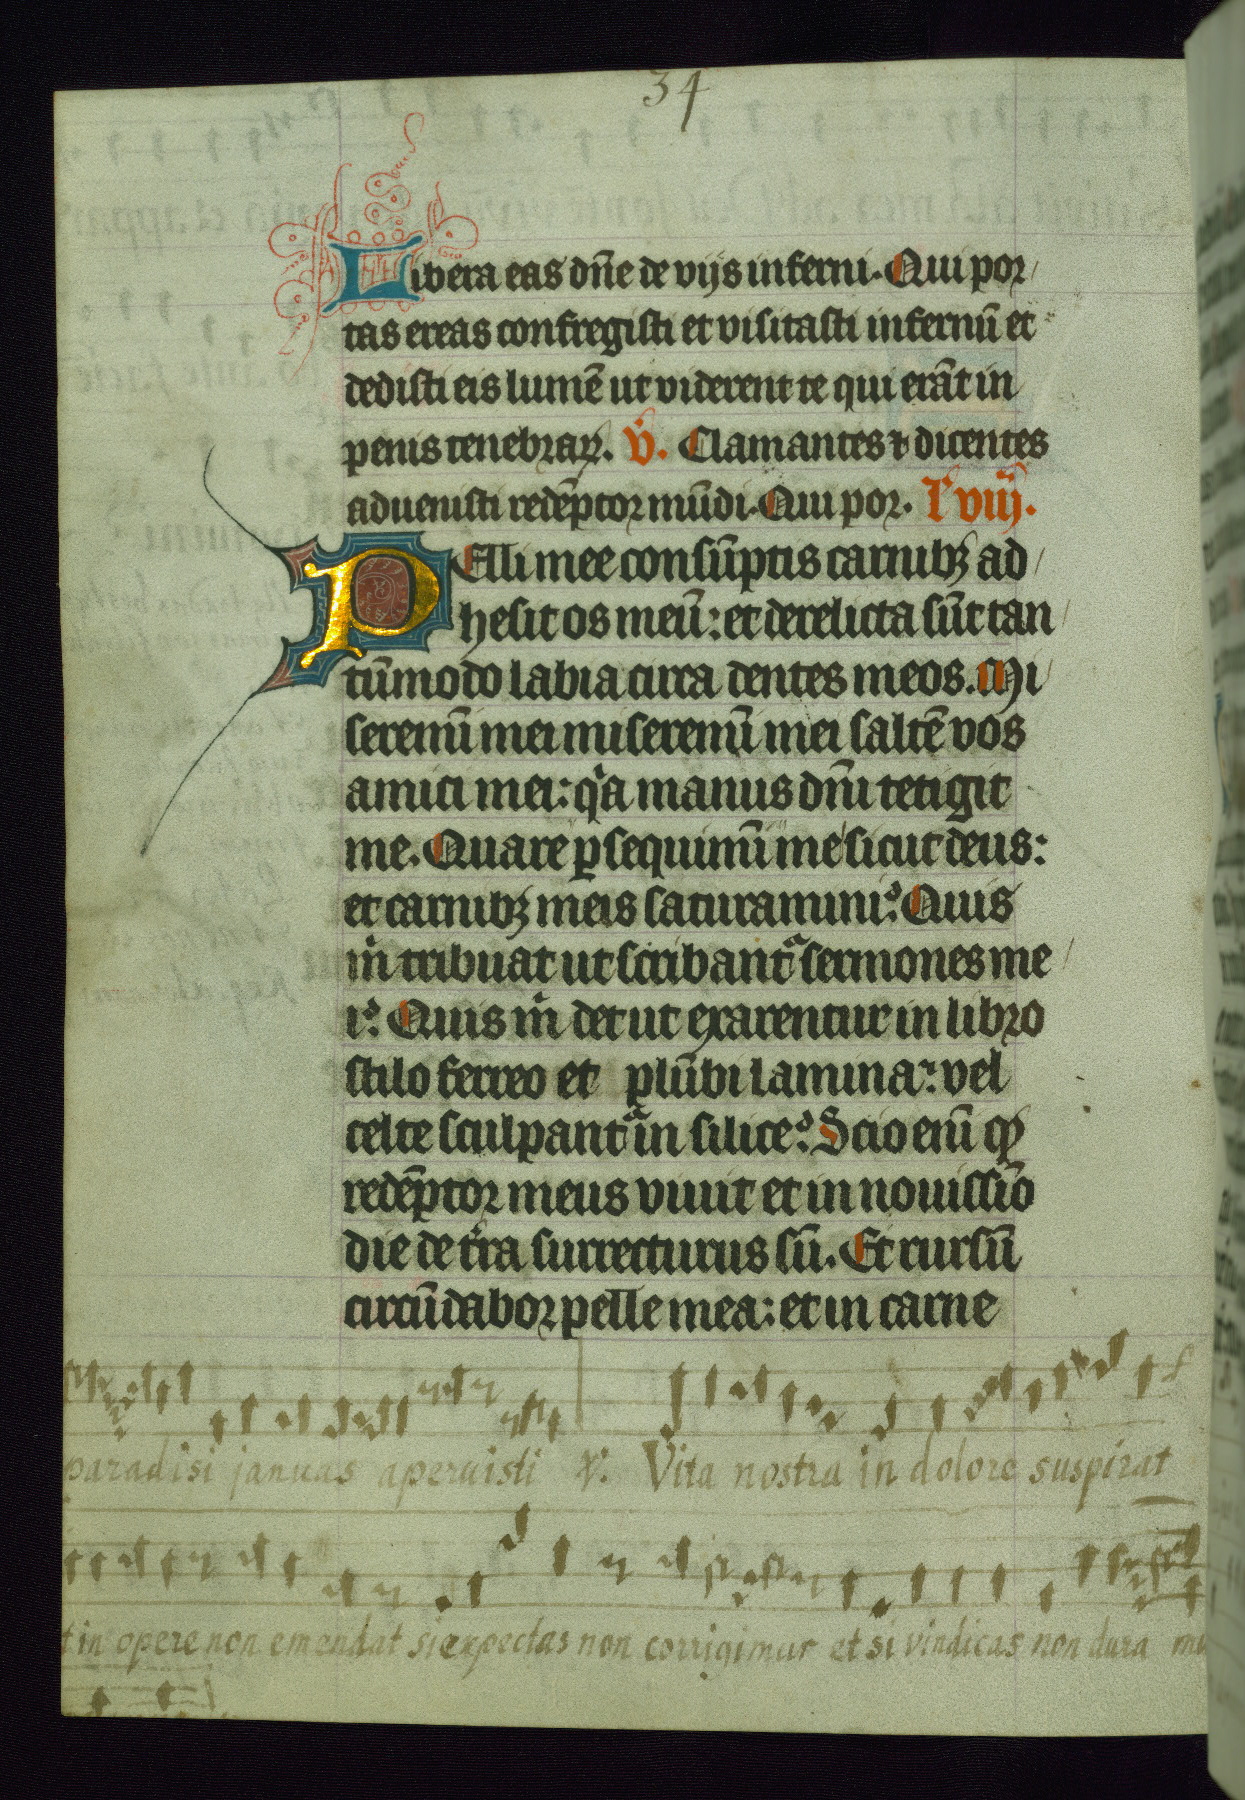 34
Libera eas dn̄e de vijs inferni. Qui por
tas ereas confregisti et visitasti infernū et
dedisti eis lumē ut viderent te qui erāt in
penis tenebrarꝝ. V̄. Clamantes ⁊ dicentes
aduenisti redēptor mūdi. Qui por. L̄ viiȷ.
Pelli mee consūptis carnibꝫ ad
hesit os meū: et derelicta sūt tan
tūmodo labia circa dentes meos. Mi
seremī mei miseremī mei saltē vos
amici mei: qͣa manus dn̄i tetigit
me. Quare ꝑsequimī me sicut deus:
et carnibꝫ meis saturamini? Quis
m̍ tribuat ut scribantᷣ sermones me
i? Quis m̍ det ut exarentur in libro
stilo ferreo et plūbi lamina: vel
celte sculpantᷣ in silice? Scio enī qꝫ
redēptor meus viuit et in nouissīo
die de tr̄ra surrecturus sū. Et rursū
circūdabor pelle mea: et in carne
paradisi januas aperuisti ℣. Vita nostra in dolore suspirat
t in opere non emendat si expectas non corrigimur et si vindicas non dura mu